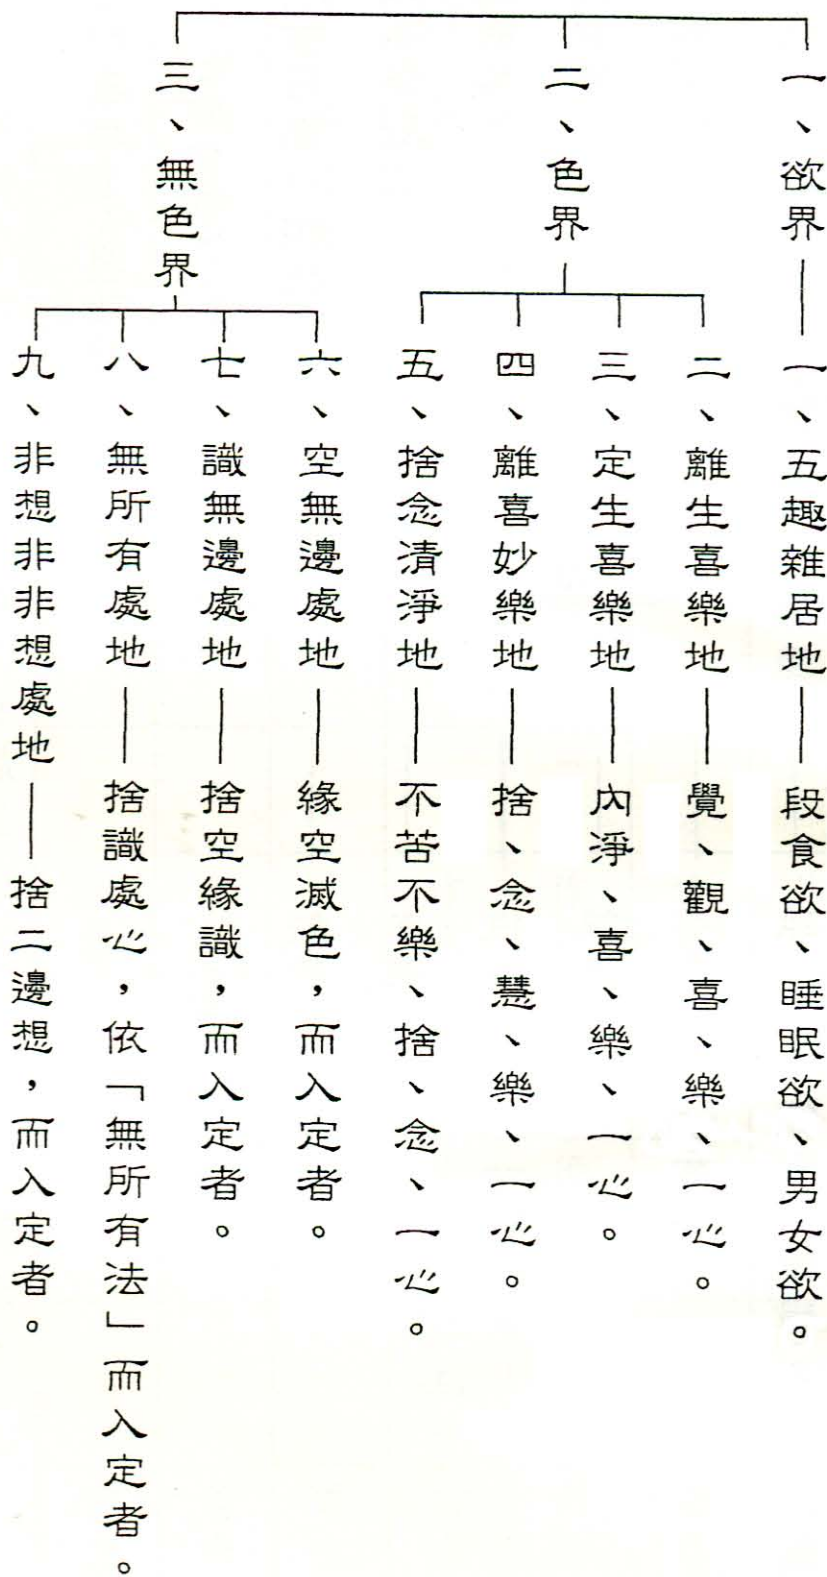 一、欲界——一、五趣雜居地——段食欲、睡眠欲、男女欲。
二、色界
二、離生喜樂地——覺、觀、喜、樂、一心。
三、定生喜樂地——內淨、喜、樂、一心。
四、離喜妙樂地——捨、念、慧、樂、一心。
五、捨念清淨地——不苦不樂、捨、念、一心。
三、無色界
六、空無邊處地——緣空滅色，而入定者。
七、識無邊處地——捨空緣識，而入定者。
八、無所有處地——捨識處心，依「無所有法」而入定者。
九、非想非非想處地——捨二邊想，而入定者。